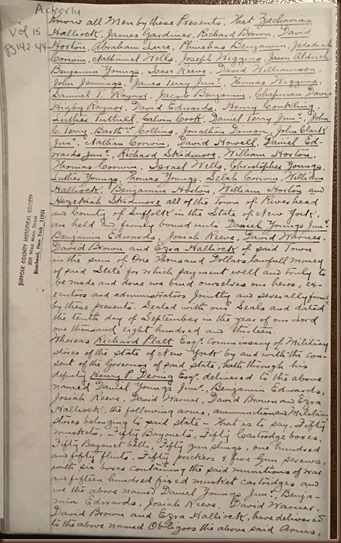 Vol 15
Know all Men by these Presents, That Zacharias
Hallock, James Gardiner, Richard Brown, David
Horton, Abraham Luce, Phinehas Benjamin, Jedediah
Corwin, Nathaniel Wells, Joseph Wiggins, Jason Aldrich
Benjamin Youngs, Isaac Reeve, David Williamson
John Jennings, James Terry Junr. Thomas Wiggins,
Samuel T. Raynor, Jacob Benjamin, Chapman Davis
Higby Raynor, David Edwards, Henry Conkling,
Luther Tuthill, Calvin Cook, Daniel Terry Junr., John
C. Terry, Collins, Jonathan John Clark
Junr., Nathan Corwin, David Howell, Daniel Ed-
wards Junr., Richard Skidmore, William Horton,
Thomas Corwin, Israel Wells, Christopher Youngs,
Luther Youngs, Thomas Youngs, Selah Corwin, William
Hallock, Benjamin Horton, William Horton and
Hezekiah Skidmore all of the Town of River head
and County of Suffolk in the State of New York,
are held and firmly bound unto Daniel Youngs Junr.
Benjamin Edwards, Josiah Reeve, David Warner,
David Brown and Ezra Hallock of said Town
in the sum of One Thousand Dollars lawful money
of said State for which payment well and truly to
be made and done we bind ourselves our heirs, ex-
ecutors and administrators Jointly and severally firmly
by these presents. Sealed with our Seals and dated
the tenth day of September in the year of our Lord
one thousand eight hundred and thirteen.
Whereas Richard Platt Esqr. Commissary of Military
stores of the state of New York by and with the con-
sent of the Governor of said state, hath through his
deputy Henry P. Dering Esqr. delivered to the above
named Daniel Youngs Junr., Benjamin Edwards,
Josiah Reeve, David Warner, David Brown and Ezra
Hallock, the following arms, ammunition & Military
stores belonging to said state – that is to say, Fifty
muskets, Fifty Bayonets, Fifty Cartridge boxes,
Fifty Bayonet belts, Fifty gun slings, one hundred
and fifty flints, Fifty pickers, five Gun screws,
with six boxes containing the said munitions of War
and fifteen hundred fixed musket cartridges and
we the above named Daniel Youngs Junr., Benja-
min Edwards, Josiah Reeve, David Warner,
David Brown and Ezra Hallock, have delivered
to the above named Obligors the above said Arms,
SUFFOLK COUNTY HISTORICAL SOCIETY
300 West Main Street
Riverhead, New York 11901